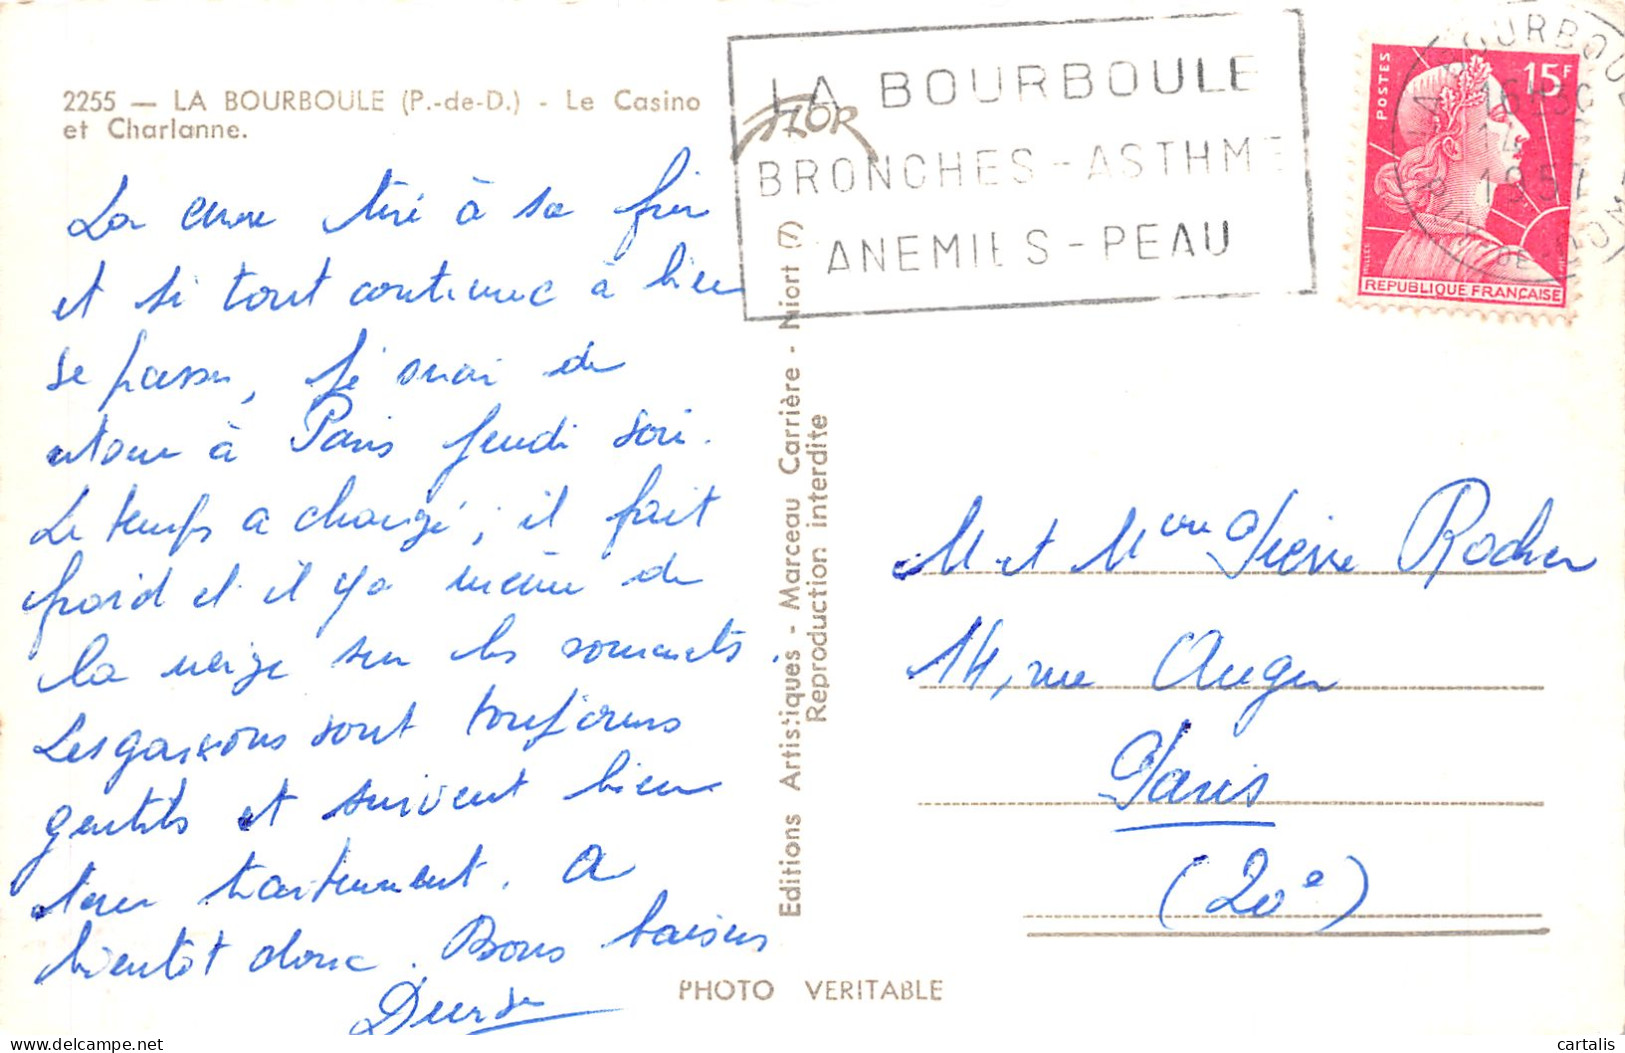 2255 — LA BOURBOULE (P.-de-D.) - Le Casino
et Charlanne.
La cure tire à sa fin
et si tout continue à bien
se passer, je serai de
retour à Paris jeudi soir.
Le temps a changé, il fait
froid et il y a même de
la neige sur les sommets.
Les garçons sont toujours
gentils et suivent bien
leur traitement. A
bientôt donc. Bons baisers
FLOR
LA BOURBOULE
BRONCHES - ASTHME
ANEMIES - PEAU
LA BOURBOULE
16H30
14
1957
PUY-DE-DOME
POSTES
15F
MULLER
REPUBLIQUE FRANÇAISE
Editions Artistiques - Marceau Carrière - Niort (7)
Reproduction interdite
M et Mme Pierre Rocher
14, rue Auger
Paris
(20e)
PHOTO VERITABLE
cartalis